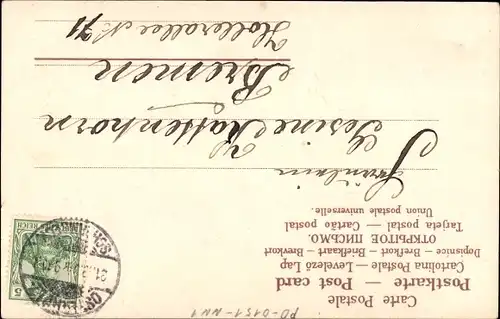 Carte Postale
Postkarte — Post card
Cartolina Postale — Levelező Lap
Dopisnice — Brefkort — Briefkaart — Brevkort
ОТКРЫТОЕ ПИСЬМО.
Tarjeta postal — Cartão postal
Union postale universelle.
Fräulein
Gesine Kattenhorn
Bremen
Hollerallee No 71
REICH
5
PD-0151-NN1